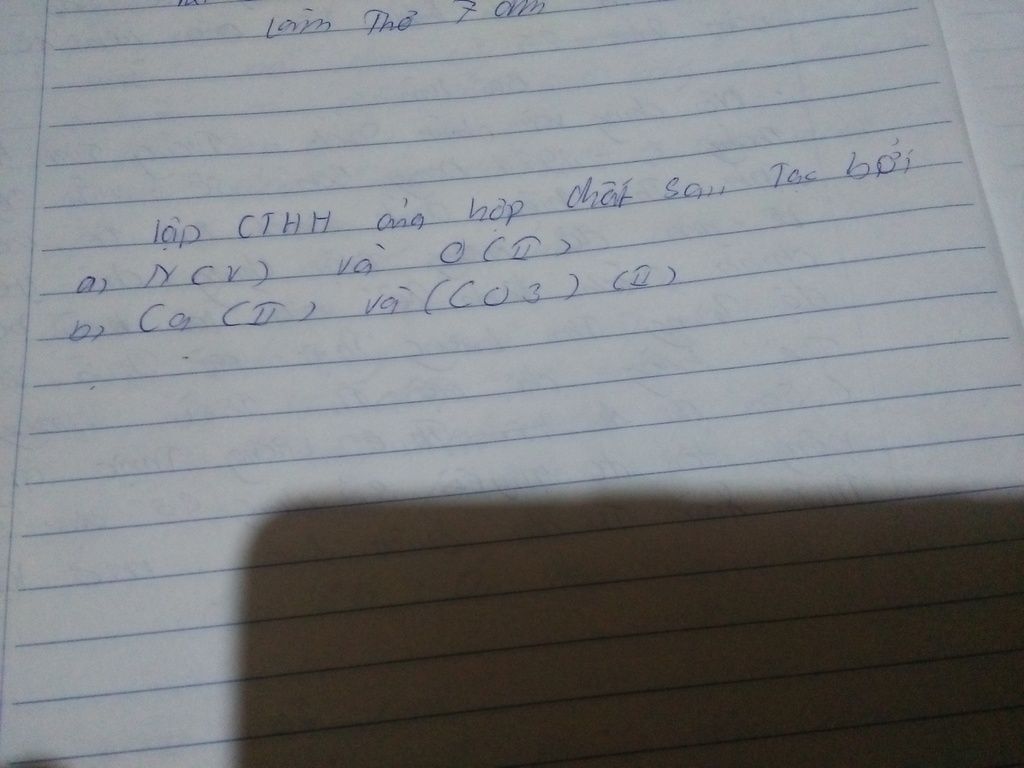 Làm Thơ 7 am
lập CTHH của hợp chất sau Tạo bởi
a, N(V) và O(II)
b, Ca (II) và (CO3) (II)